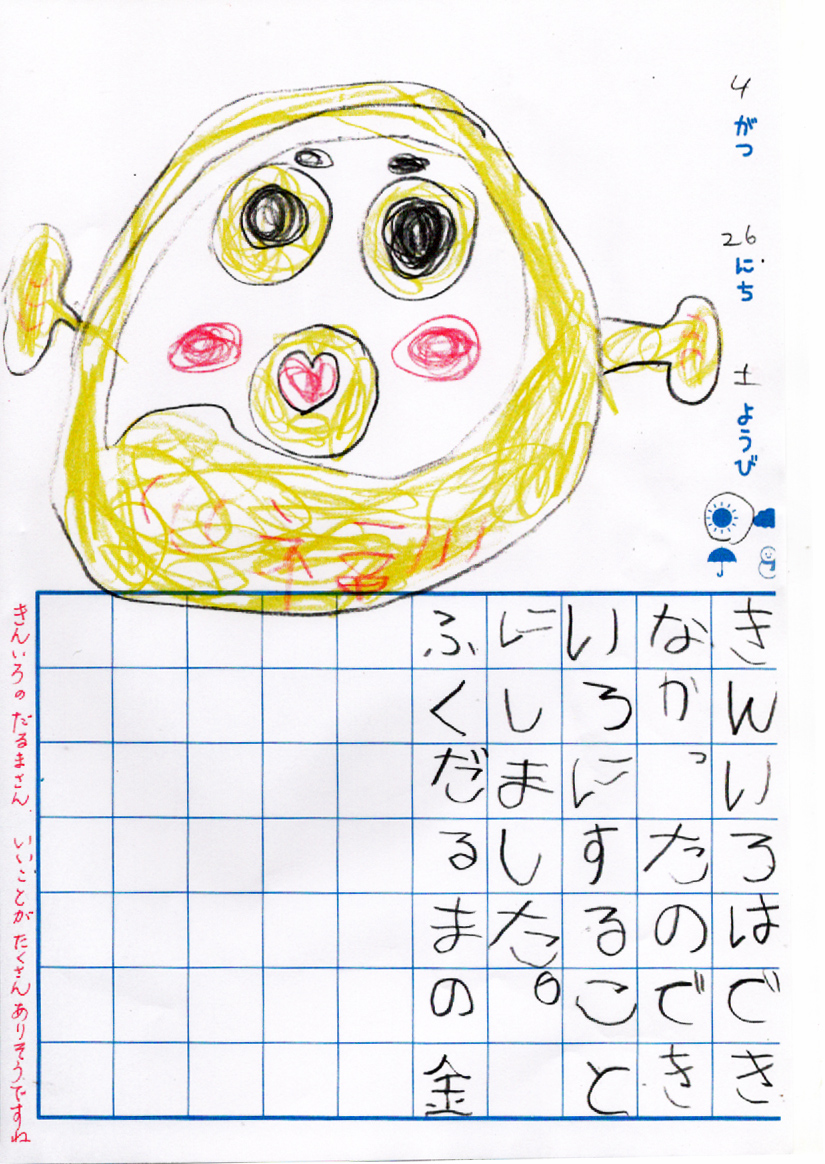 4がつ 26にち 土ようび
きんいろはでき
なかったのでき
いろにすること
にしました。
ふくだるまの金
きんいろのだるまさん、いいことがたくさんありそうですね